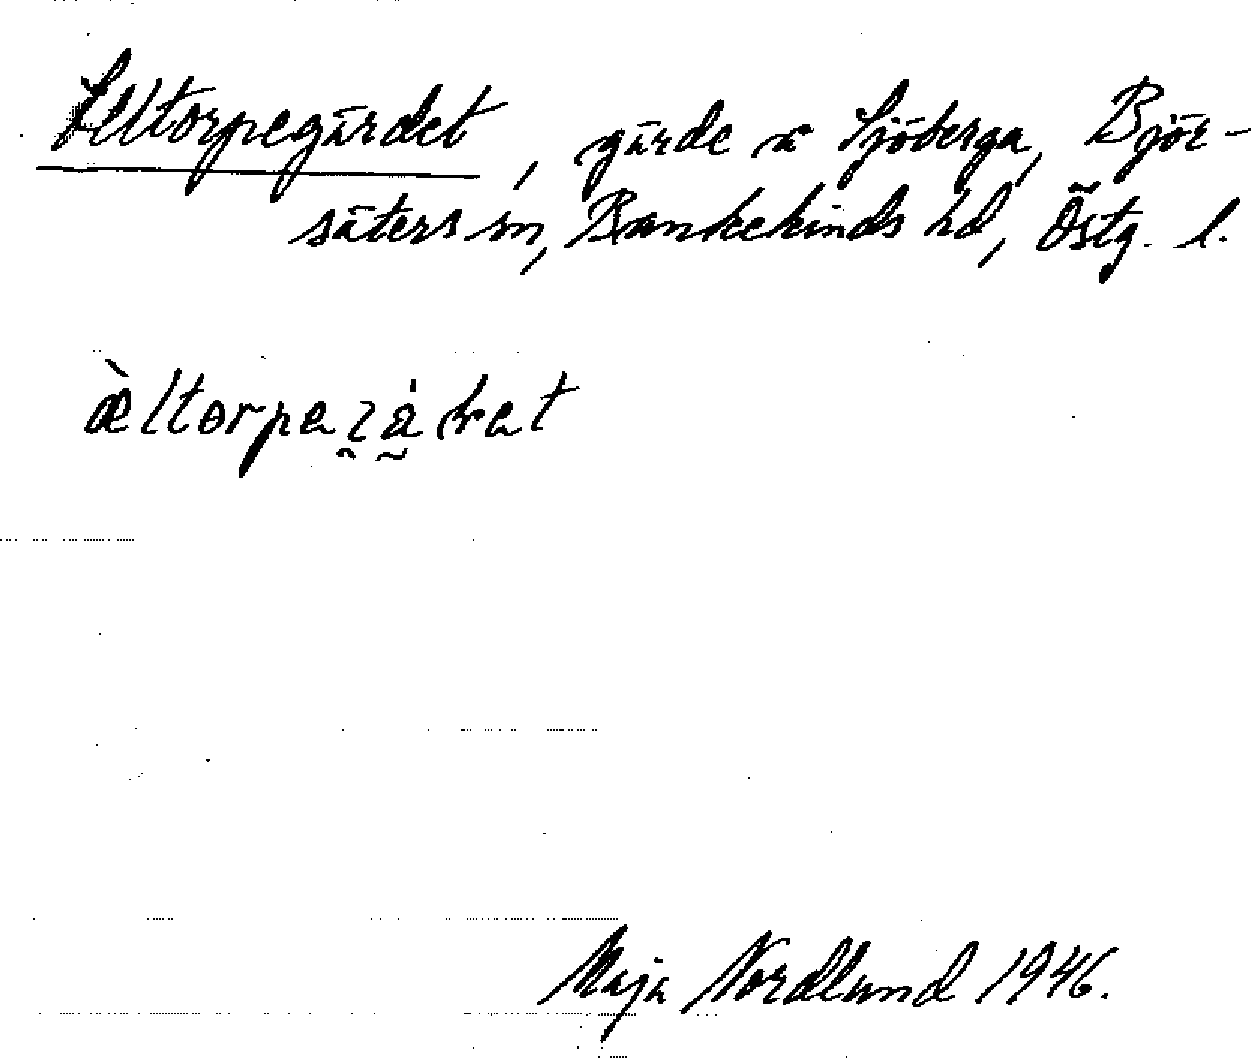 Elltorpegärdet, gärde å Sjöberga, Björ-
säters sn, Bankekinds hd, Östg. l.
Maja Nordlund 1946.